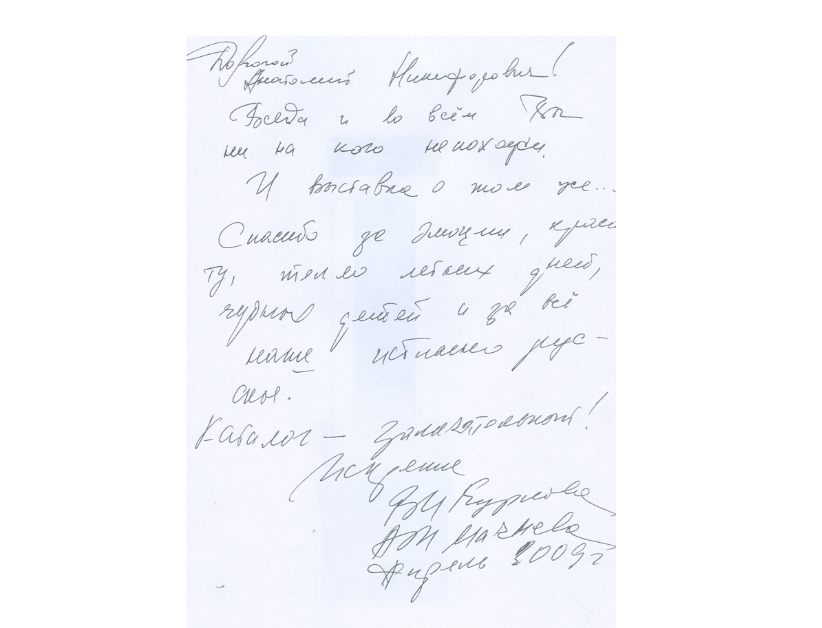 Дорогой
Анатолий Никифорович!
Всегда и во всём Вы
ни на кого непохожи.
И выставка о том же...
Спасибо за эмоции, красо
ту, тепло летних дней,
чудных детей и за всё
наше истинно рус-
ское.
Каталог – замечательный!
Искренне
Апрель 2009 г